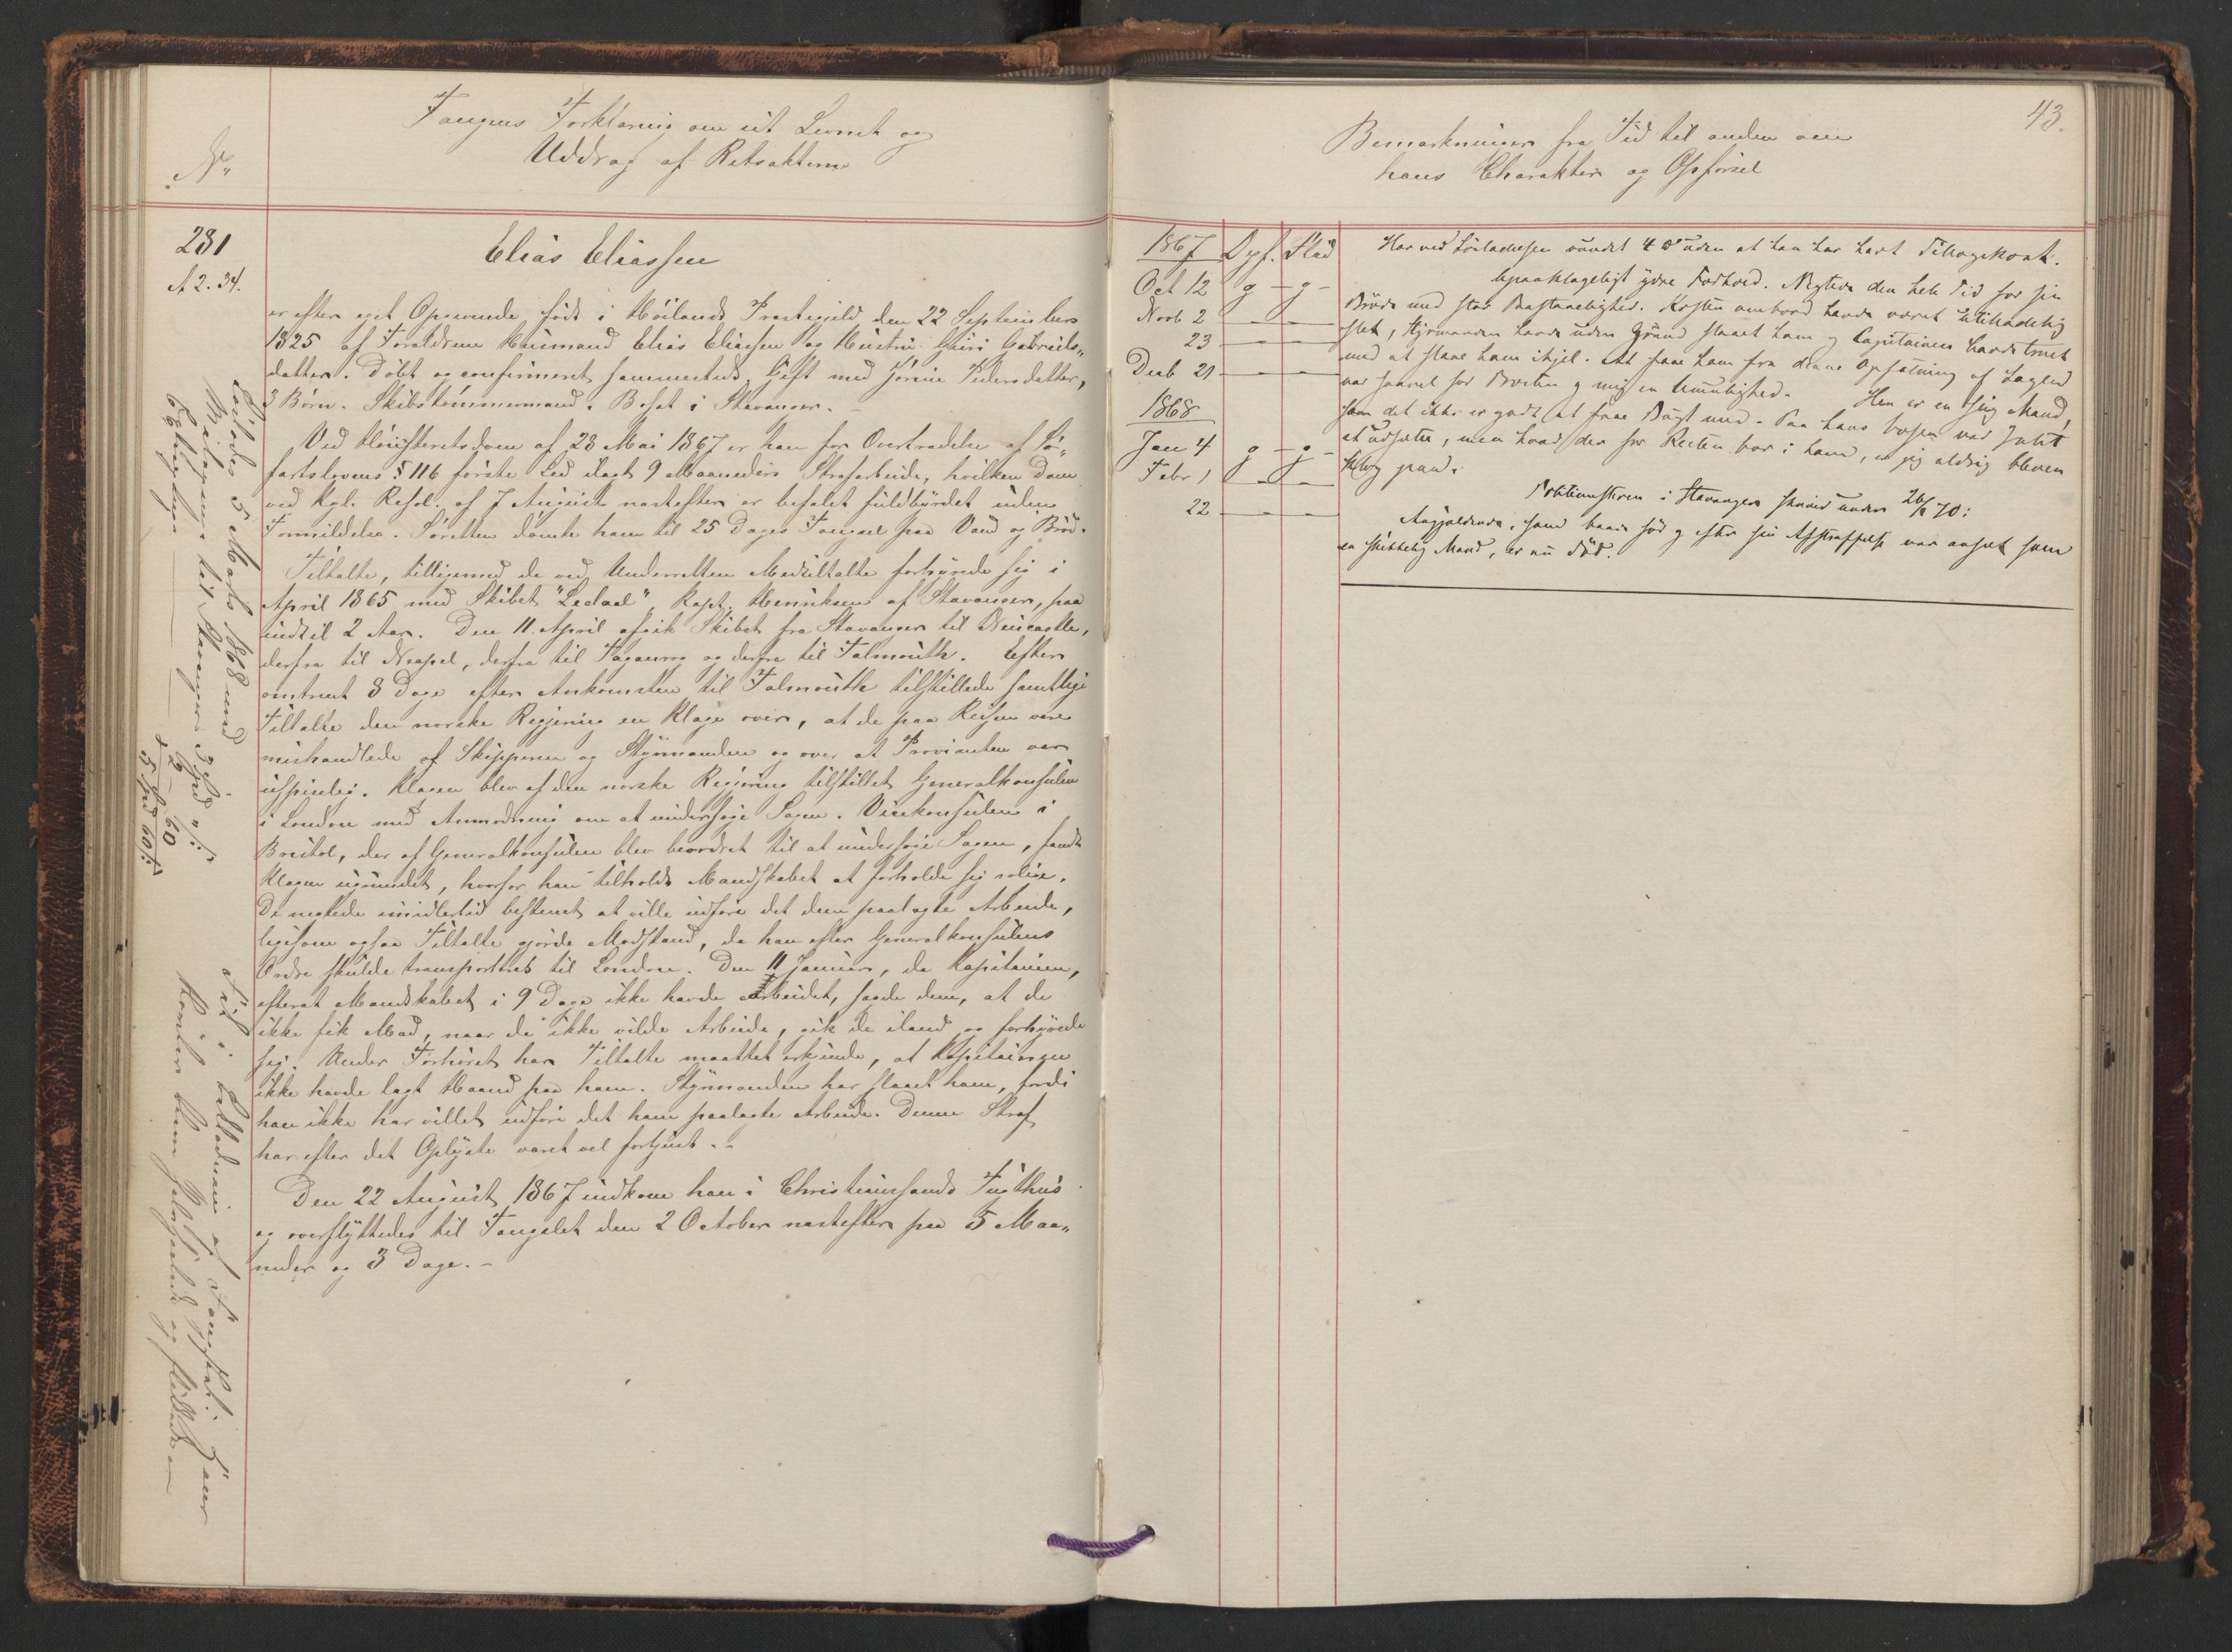 Fangens Forklaring om sit Levnet og
Uddrag af Retsakterne
No
231
A 2. 34.
Elias Eliassen
er efter eget Opgivende født i Høilands Præstegjeld den 22 Septembers
1825 af Forældrene Huusmand Elias Eliassen og Hustru Guri Gabriels„
datter. Døbt og confirmeret sammesteds. Gift med Jørine Pedersdatter,
3 Børn. Skibstømmermand. Bosat i Stavanger. –
Ved Høiesteretsdom af 28 Mai 1867 er han for Overtrædelse af Sø-
fartslovens § 116 første Led ilagt 9 Maaneders Strafarbeide, hvilken Dom
ved Kgl. Resol. af 7 August næstefter er befalet fuldbyrdet uden
Formildelse. Søretten dømte ham til 25 Dages Fængsel paa Vand og Brød.
Tiltalte, tilligemed de ved Underretten Medtiltalte forhyrede sig i
April 1865 med Skibet "Ledaal", Kapt. Henriksen af Stavanger, paa
indtil 2 Aar. Den 11. April afgik Skibet fra Stavanger til Newcastle,
derfra til Neapel, derfra til Taganrog og derfra til Falmouth. Efter
omtrent 8 Dage efter Ankomsten til Falmouth tilstillede samtlige
Tiltalte den norske Regjering en Klage over, at de paa Reisen vare
mishandlede af Skipperen og Styrmanden og over at Provianten var
uspiselig. Klagen blev af den norske Regjering tilstillet Generalkonsulen
i London med Anmodning om at undersøge Sagen. Vicekonsulen i
Bristol, der af Generalkonsulen blev beordret til at undersøge Sagen, fandt
Klagen ugrundet, hvorfor han tilholdt Mandskabet at forholde sig rolige.
De negtede imidlertid bestemt at ville udføre det dem paalagte Arbeide,
ligesom ogsaa Tiltalte gjorde Modstand, da han efter Generalkonsulens
Ordre skulde transporteres til London. Den 11 Januar, da Kapitainen,
efterat Mandskabet i 9 Dage ikke havde arbeidet, sagde dem, at de
ikke fik Mad, naar de ikke vilde Arbeide, gik de iland og forhyrede
sig. Under Forhøret har Tiltalte maattet erkjende, at Kapitainen
ikke havde lagt Haand paa ham. Styrmanden har slaaet ham, fordi
han ikke har villet udføre det ham paalagte Arbeide. Denne Straf
har efter det Oplyste været vel fortjent. –
Den 22 August 1867 indkom han i Christianssands Tugthus
og overflyttedes til Fængslet den 2 October næstefter paa 5 Maa„
neder og 3 Dage. –
Løslades 5 Marts 1868 med
Reisepenge til Stavanger 3 Spd „ :
2 60
5 Spd 60
Bemærkninger fra Tid til anden om
hans Charakter og Opførsel
43.
1867 Opf. Flid
Oct 12 g – g –
Novb 2
23
Decb 21
1868
Jan 4 g – g –
Febr 1
22
Har ved Løsladelsen vundet 4 uden at han har havt Tilbagekast.
Upaaklageligt ydre Forhold. Negtede den hele Tid for sin
Brøde med stor Paastaaelighed. Kosten ombord havde været utilladelig
slet, Styrmanden havde uden Grund slaaet ham og Capitainen havde truet
med at slaae ham ihjel. At faae ham fra denne Opfatning af Sagen
var saavel for Præsten og mig en Umulighed. Han er en Mand,
som det ikke er godt at faae Bugt med. Paa hans Væsen var Intet
at udsætte, men hvad der for Resten bor i ham, er jeg aldrig bleven
klog paa.
Politimesteren i Stavanger skriver under 26/1 70:
Angjældende, som baade før og efter sin Afstraffelse var anseet som
en skikkelig Mand, er nu død.